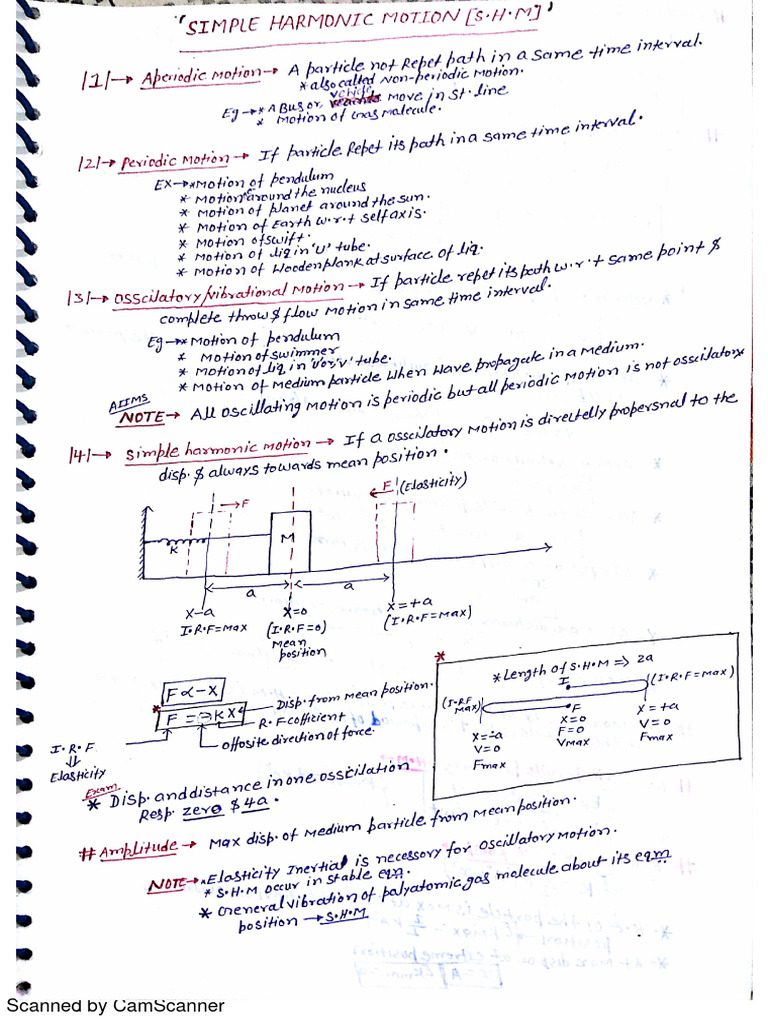 "SIMPLE HARMONIC MOTION [S.H.M]"
|1|→ Aperiodic Motion → A particle not Repet path in a same time interval.
* also called Non-periodic Motion.
vehicle
Eg →* A Bus or move in St. line
* Motion of Gas Malecule.
|2|→ Periodic Motion → If particle Repet its path in a same time interval.
EX →* Motion of pendulum
* Motion around the nucleus
* Motion of planet around the sun.
* Motion of Earth w.r.t self axis.
* Motion of swift.
* Motion of liq in 'U' tube.
* Motion of Wooden plank at surface of liq.
|3|→ Osscilatory/vibrational Motion → If particle repet its path w.r.t same point &
complete throw & flow Motion in same time interval.
Eg →* Motion of pendulum
* Motion of swimmer
* Motion of liq in 'U' or 'V' tube.
* Motion of Medium particle when wave propagate in a Medium.
AIIMS
NOTE → All oscillating Motion is periodic but all periodic Motion is not osscilatory
|4|→ Simple harmonic motion → If a osscilatory Motion is direltelly propersnal to the
disp. & always towards mean position.
→F
F (Elasticity)
K
M
a
a
X-a
X=0
X=+a
I.R.F=Max
(I.R.F=0)
(I.R.F=Max)
Mean
position
* Length of S.H.M => 2a
I
(I.R.F=Max)
(I.R.F Max)
F
X=-a
X=0
X=+a
V=0
F=0
V=0
Fmax
Vmax
Fmax
F∝-X
* F=-KX
Disp. from Mean position.
R.F cofficient
offosite direction of force.
I.R.F
⇓
Elasticity
Exam
* Disp. and distance in one osscilation
Resp. zero & 4a.
# Amplitude → Max disp. of Medium particle from Mean position.
NOTE →* Elasticity Inertial is necessary for oscillatory Motion.
* S.H.M occur in stable eqm.
* General vibration of palyatomic gas molecule about its eqm
position → S.H.M
Scanned by CamScanner